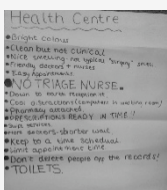 Health Centre
• Bright colours
• Clean but not clinical
• Nice smelling - not typical smells
• Friendly doctors + nurses
• Easy Appointments
• NO TRIAGE NURSE.
• Down to earth Reception
• Cool distractions (computers in waiting room)
• Pharmacy attached
• PRESCRIPTIONS READY IN TIME!!
• services
• More doctors - shorter wait
• Keep to a time schedule
• Limit appointment time
• Don't delete people off the records!!
• TOILETS.